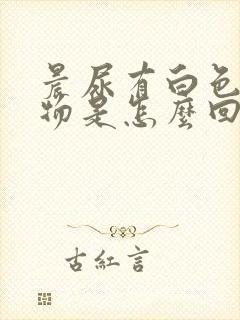 晨尿有白色
物是怎麼回
古紅言